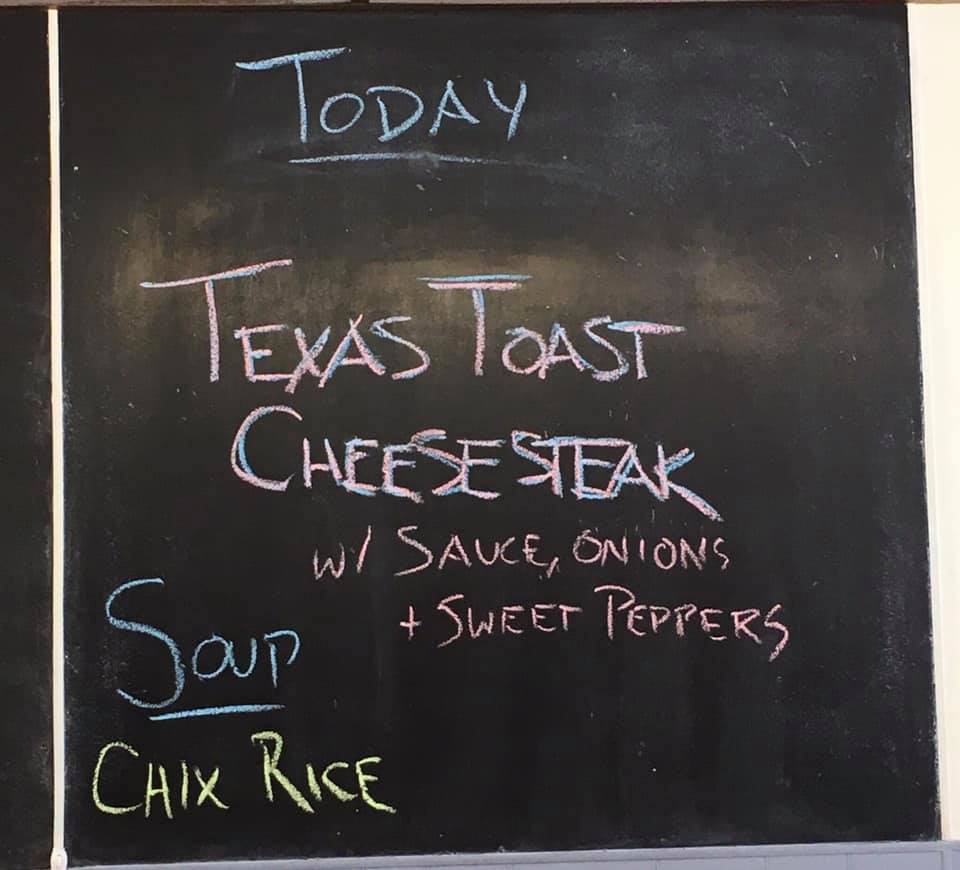 TODAY
TEXAS TOAST
CHEESESTEAK
W/ SAUCE, ONIONS
+ SWEET PEPPERS
SOUP
CHIX RICE